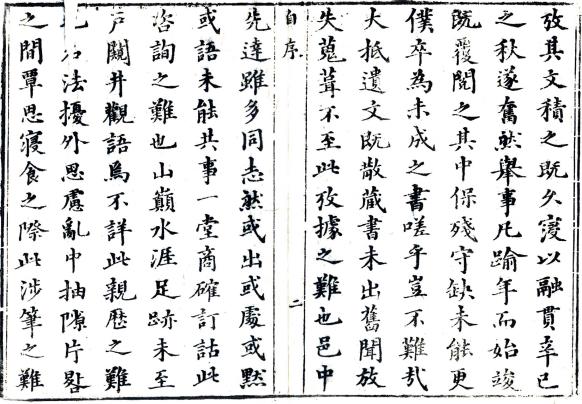 攷其文積之既久寖以融貫辛巳
之秋遂奮然舉事凡踰年而始竣
既覆閱之其中保殘守缺未能更
僕卒為未成之書嗟乎豈不難哉
大抵遺文既散藏書未出舊聞放
失蒐葺不至此攷據之難也邑中
自序
二
先達雖多同志然或出或處或黙
或語未能共事一堂商確訂詁此
咨詢之難也山巔水涯足跡未至
戶闚井觀語焉不詳此親歷之難
法擾外思慮亂中抽隙片晷
之間覃思寢食之際此涉筆之難